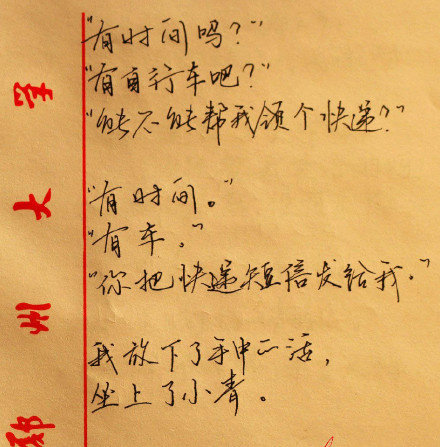 “有时间吗？”
“有自行车吧？”
“能不能帮我领个快递？”
“有时间。”
“有车。”
“你把快递短信发给我。”
我放下了手中的活，
坐上了小青。
郑州大学